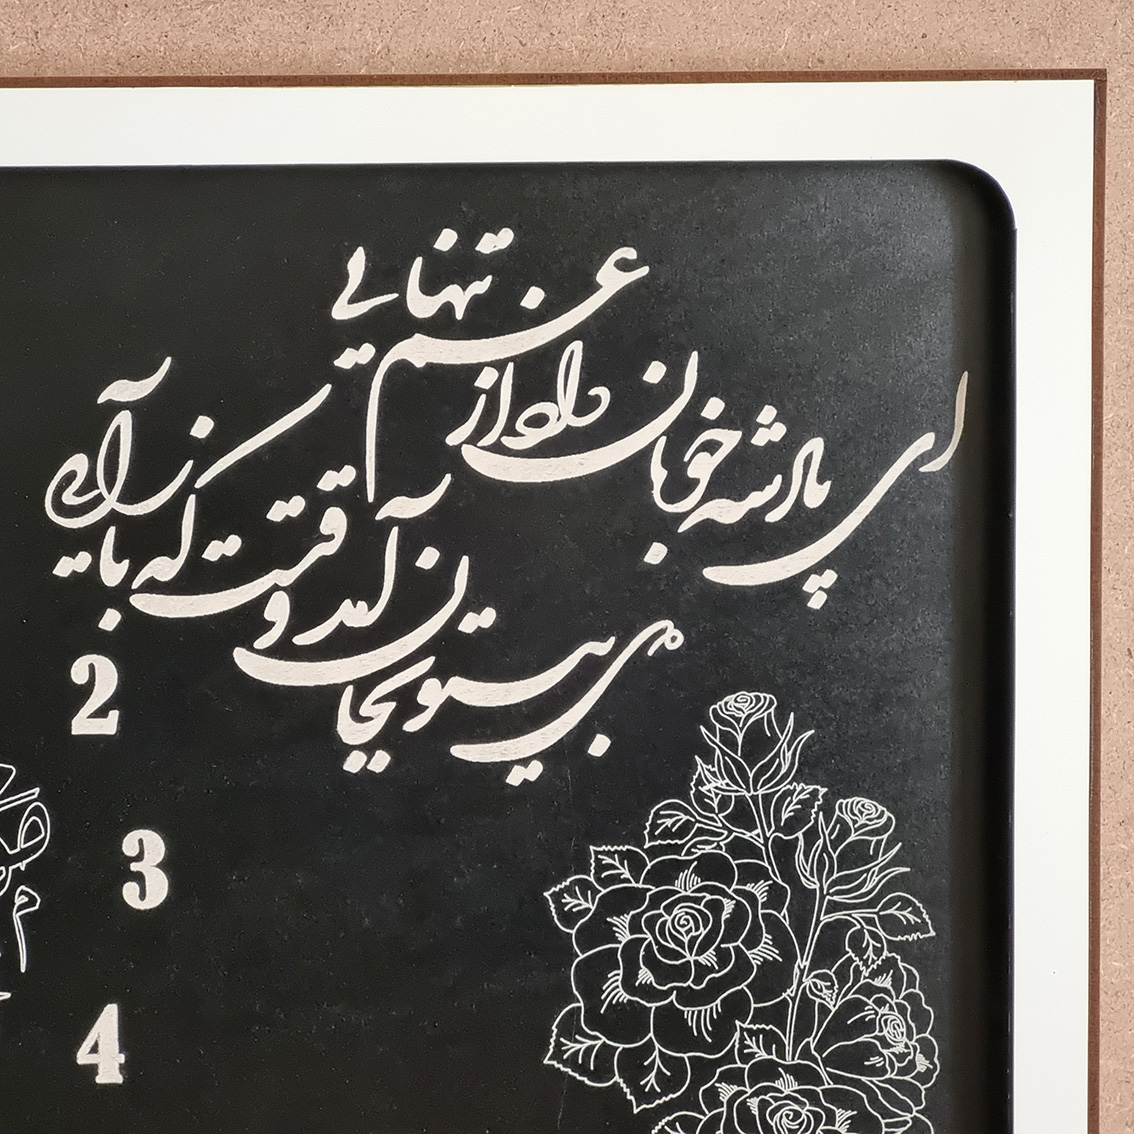 ای پادشه خوبان داد از غم تنهایی
دل بی تو بجان آمد وقت است که بازآیی
2
3
4